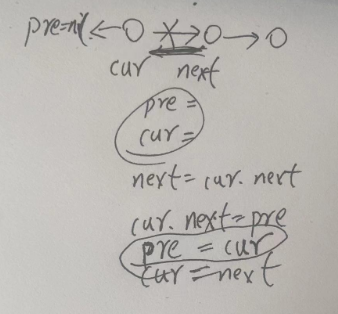 pre=nl
cur next
pre =
cur =
next = cur. next
cur. next = pre
pre = cur
cur = next